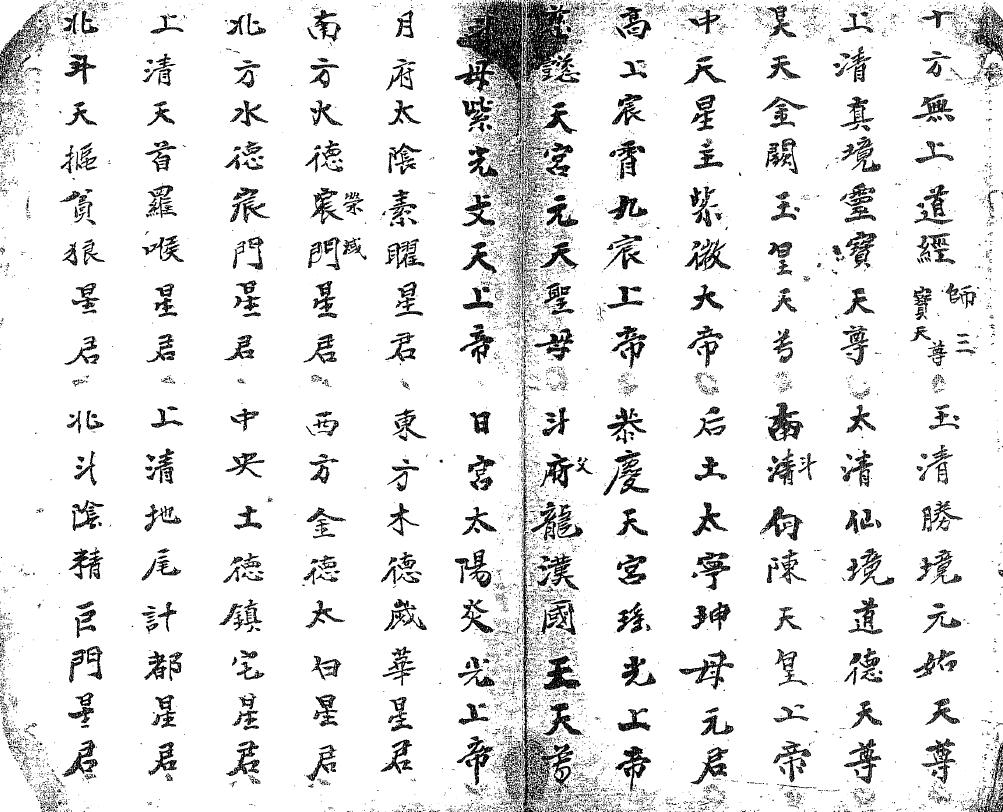 十方無上道經師三寶天尊 玉清勝境元始天尊
上清真境靈寶天尊 太清仙境道德天尊
昊天金闕玉皇天尊 南斗清勾陳天皇上帝
中天星主紫微大帝 后土太寧坤母元君
高上宸霄九宸上帝 恭慶天宮瑤光上帝
天宮元天聖母 斗府父龍漢國王天尊
斗母紫光夫天上帝 日宮太陽炎光上帝
月府太陰素曜星君 東方木德歲華星君
南方火德宸熒惑門星君 西方金德太白星君
北方水德宸門星君 中央土德鎮宅星君
上清天首羅喉星君 上清地尾計都星君
北斗天樞貪狼星君 北斗陰精巨門星君